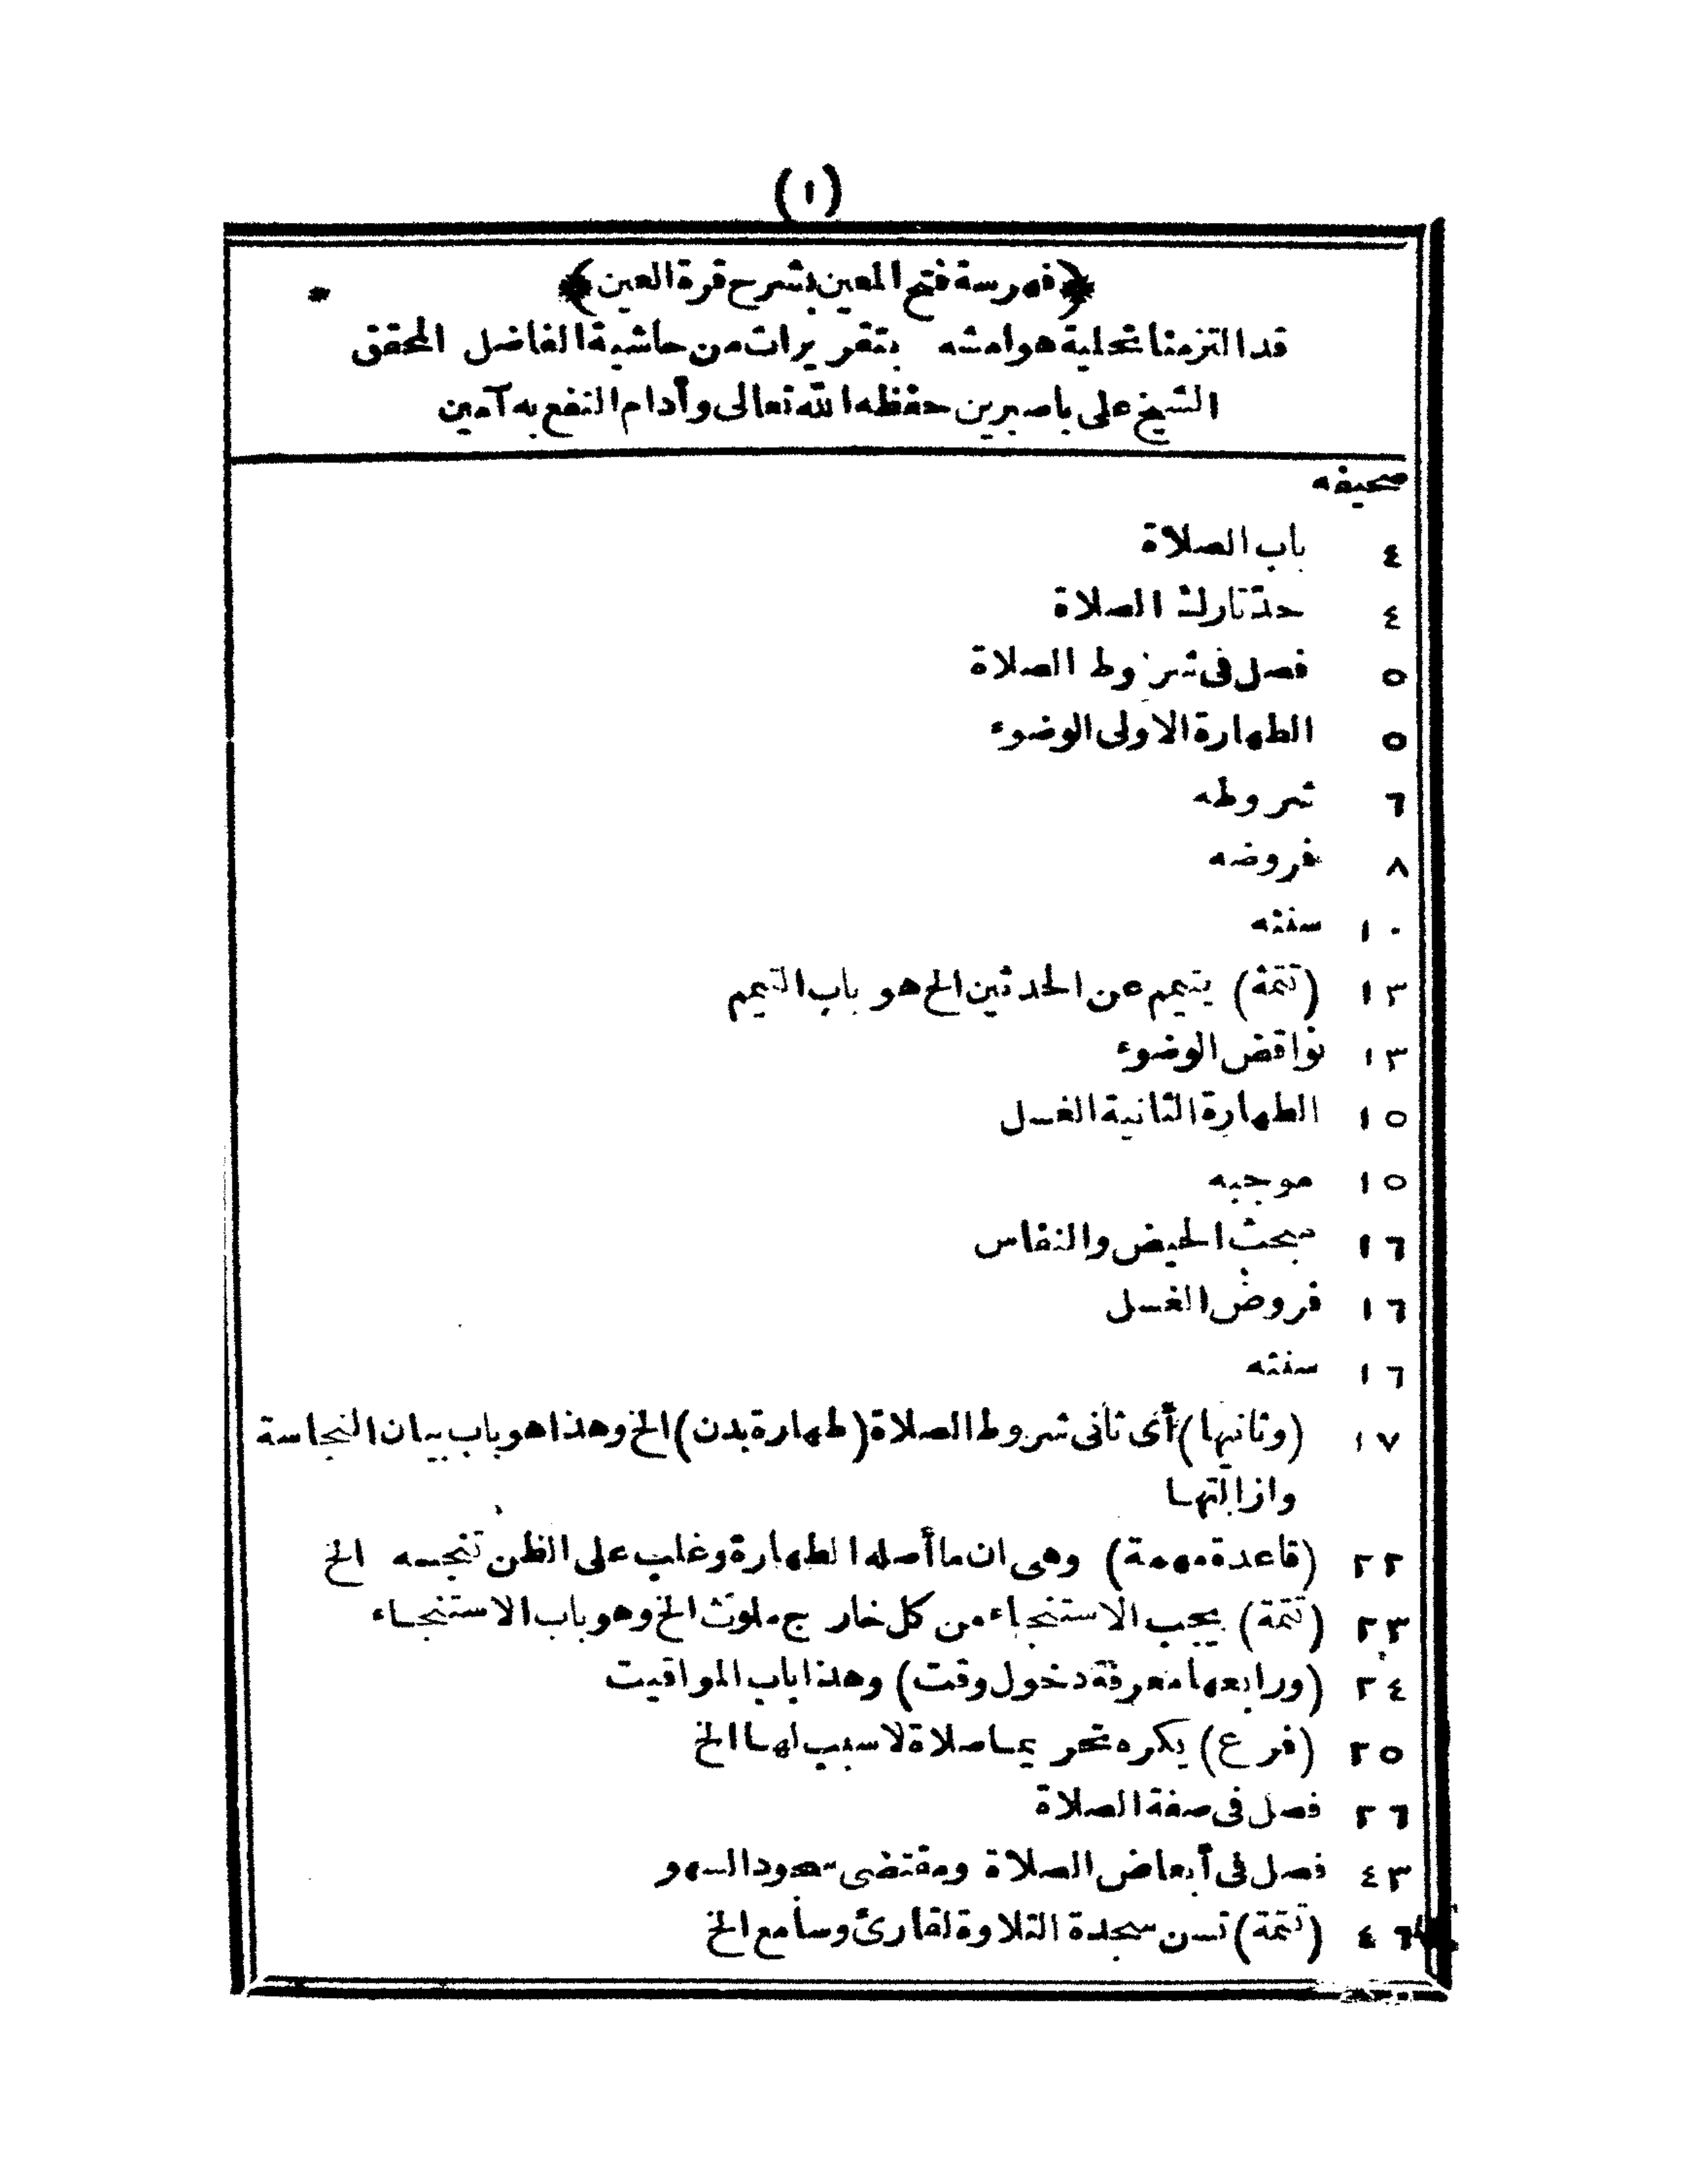 (١)
﴿فهرسة فتح المعين بشرح قرة العين﴾
قد التزمنا تحلية هوامشه بتقريرات من حاشية الفاضل المحقق
الشيخ على باصبرين حفظه الله تعالى وأدام النفع به آمين
صحيفه
٤ باب الصلاة
٤ حد تارك الصلاة
٥ فصل فى شروط الصلاة
٥ الطهارة الاولى الوضوء
٦ شروطه
٨ فروضه
١٠ سننه
١٣ (تتمة) يتيمم عن الحدثين الخ هو باب التيمم
١٣ نواقض الوضوء
١٥ الطهارة الثانية الغسل
١٥ موجبه
١٦ مبحث الحيض والنفاس
١٦ فروض الغسل
١٦ سننه
١٧ (وثانيها) أى ثانى شروط الصلاة (طهارة بدن) الخ وهذا هو باب بيان النجاسة
وازالتها
٢٢ (قاعدة مهمة) وهى ان ما أصله الطهارة وغلب على الظن تنجسه الخ
٢٣ (تتمة) يجب الاستنجاء من كل خارج ملوث الخ وهو باب الاستنجاء
٢٤ (ورابعها معرفة دخول وقت) وهذا باب المواقيت
٢٥ (فرع) يكره تحريما صلاة لا سبب لها الخ
٢٦ فصل فى صفة الصلاة
٤٣ فصل فى أبعاض الصلاة ومقتضى سجود السهو
٤٦ (تتمة) تسن سجدة التلاوة لقارئ وسامع الخ